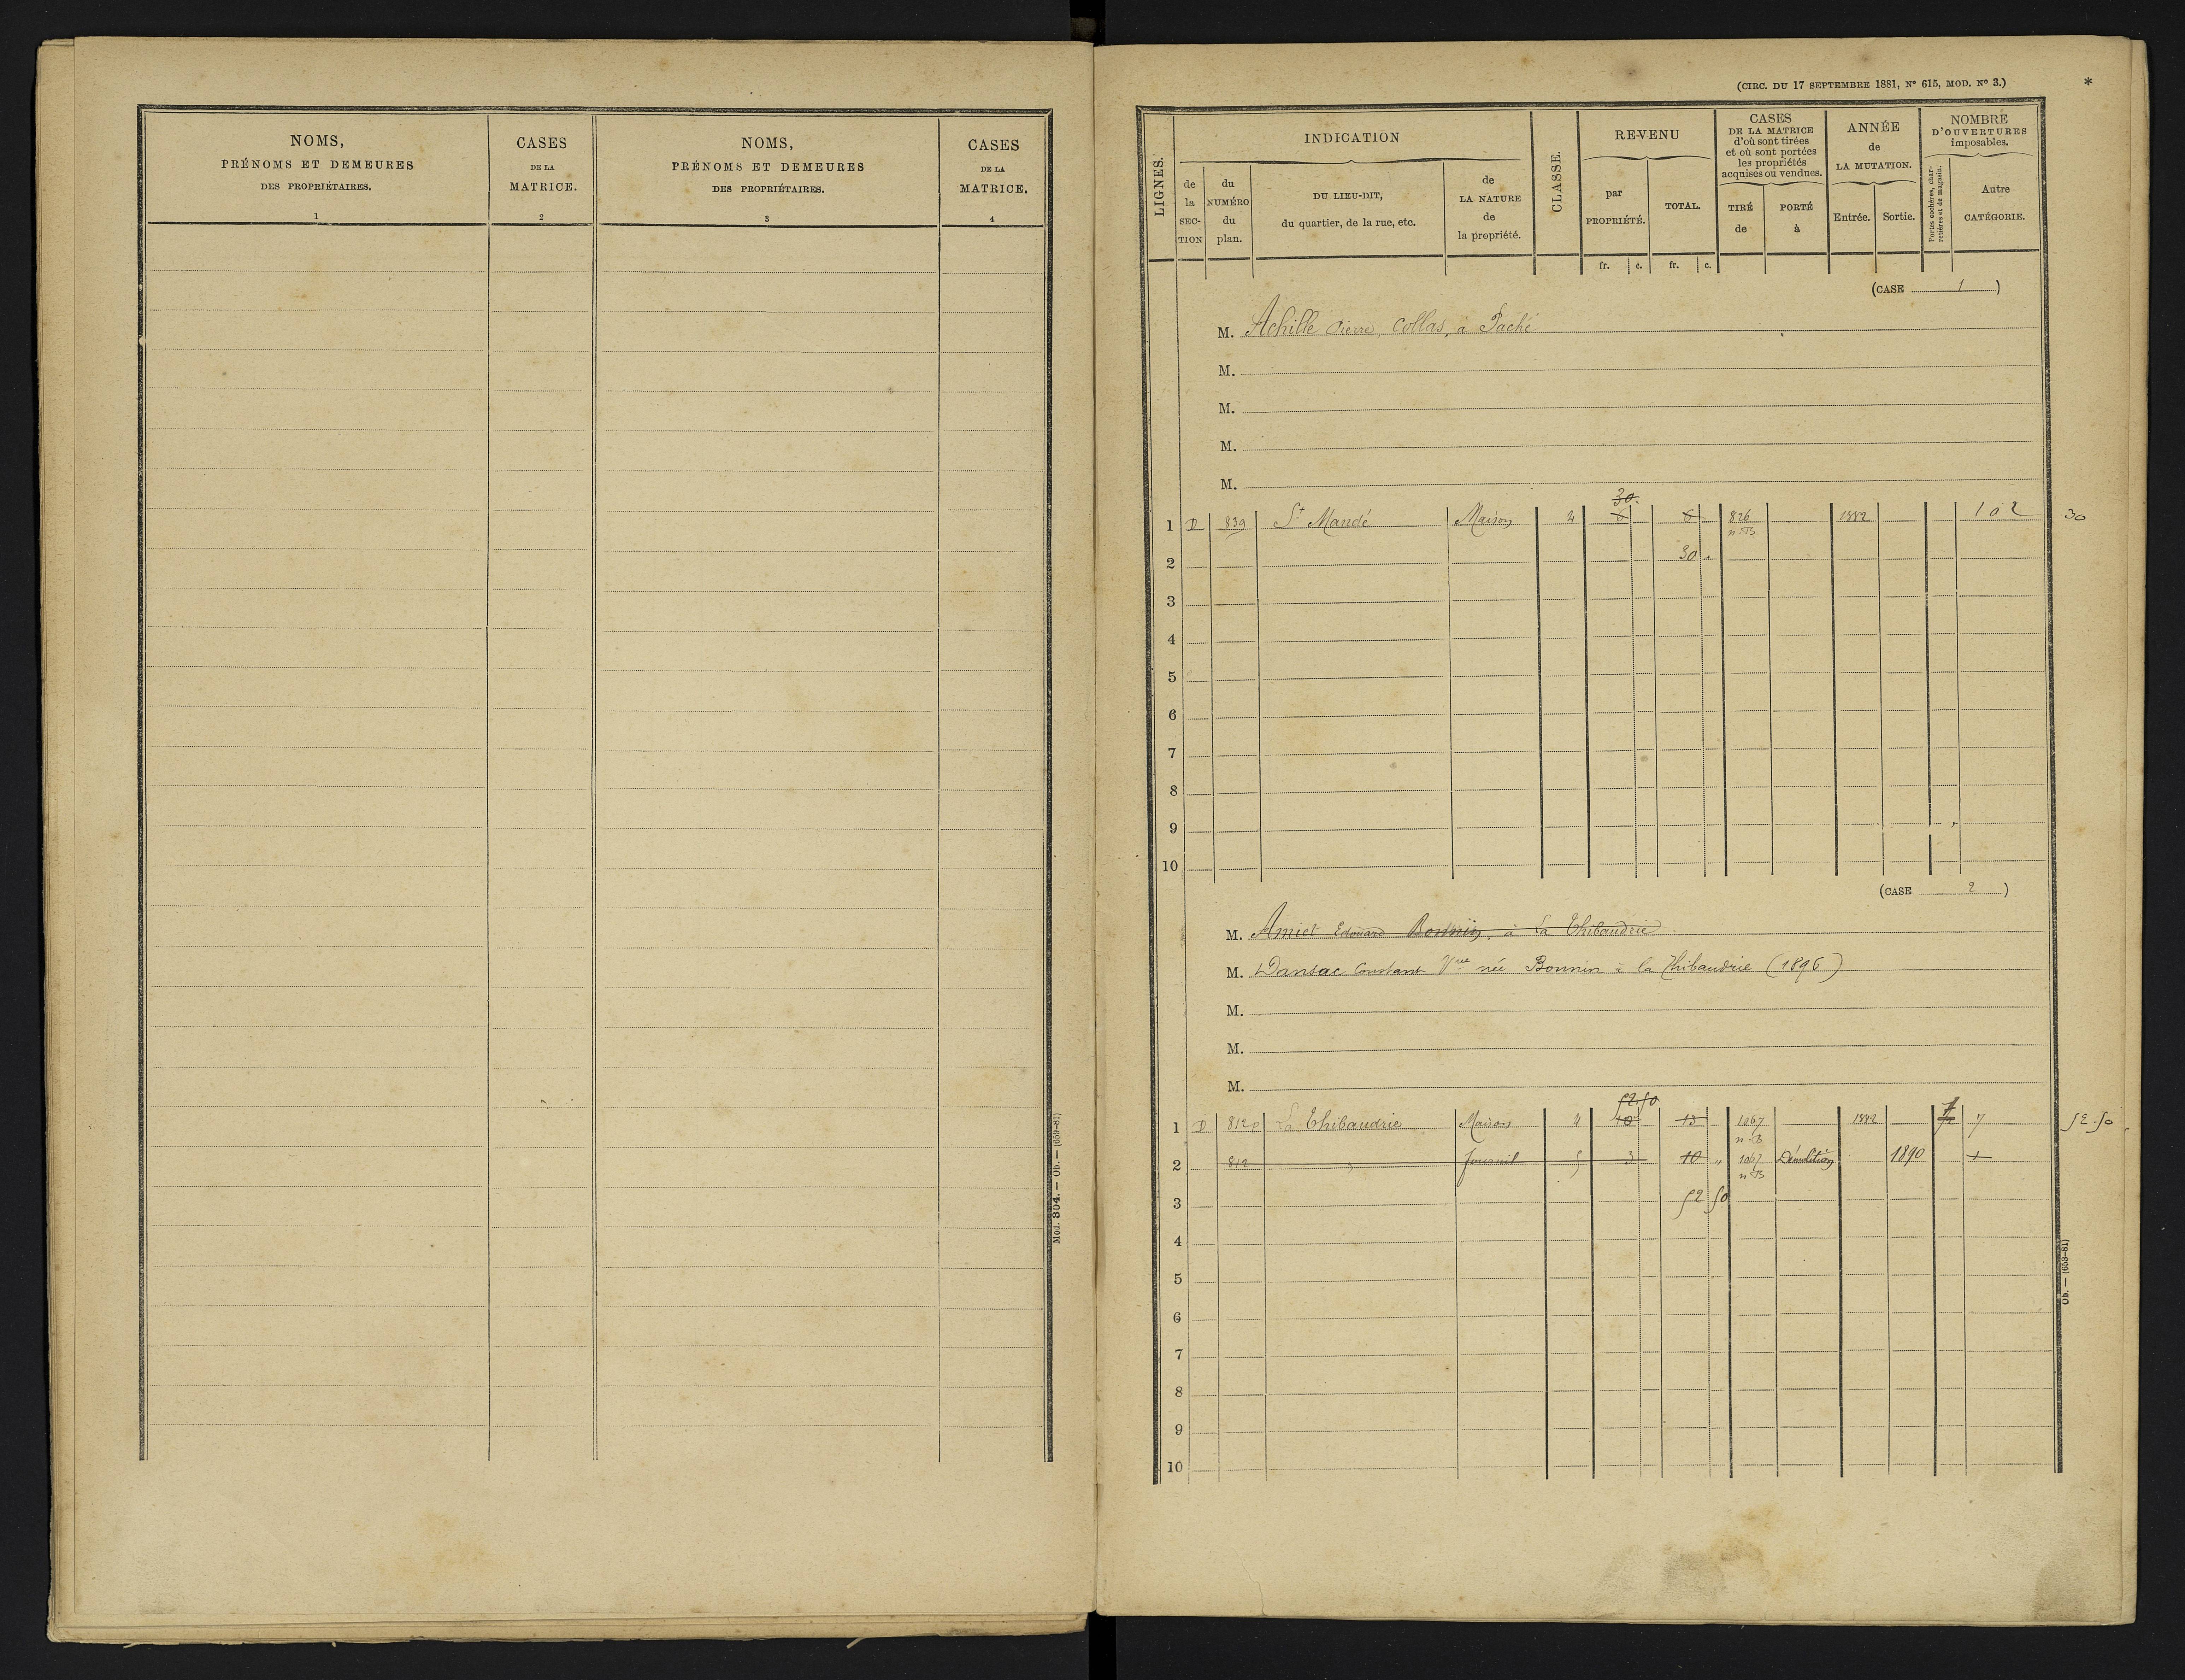 NOMS,
PRÉNOMS ET DEMEURES
DES PROPRIÉTAIRES.
1
CASES
DE LA
MATRICE.
2
NOMS,
PRÉNOMS ET DEMEURES
DES PROPRIÉTAIRES.
3
CASES
DE LA
MATRICE.
4
Mod. 304. — Ob. — (659-81)
(CIRC. DU 17 SEPTEMBRE 1881, N° 615, MOD. N° 3.)
*
LIGNES.
INDICATION
de la SECTION
du NUMÉRO du plan.
DU LIEU-DIT,
du quartier, de la rue, etc.
de LA NATURE de la propriété.
CLASSE.
REVENU
par PROPRIÉTÉ.
TOTAL.
fr. c. fr. c.
CASES
DE LA MATRICE
d'où sont tirées
et où sont portées
les propriétés
acquises ou vendues.
TIRÉ de
PORTÉ à
ANNÉE
de
LA MUTATION.
Entrée. Sortie.
NOMBRE
D'OUVERTURES
imposables.
Portes cochères, charretières et de magasin.
Autre CATÉGORIE.
(CASE 1)
M. Achille Pierre, Collas, à Paché
M.
M.
M.
M.
30
1 D 839 St Mandé Maison 4 6 6 826 1882 102 30
n.B
2 30 "
3
4
5
6
7
8
9
10
(CASE 2)
M. Amiet Edouard Bonnin, à La Thibaudrie
M. Dansac Constant Vve née Bonnin à la Thibaudrie (1896)
M.
M.
M.
52.50
1 D 812p La Thibaudrie Maison 4 10 13 1067 1882 7 52.50
n.B
2 812 " fournil 5 3 10 " 1067 Démolition 1890 1
n.B
3 52 50
4
5
6
7
8
9
10
Ob. — (659-81)